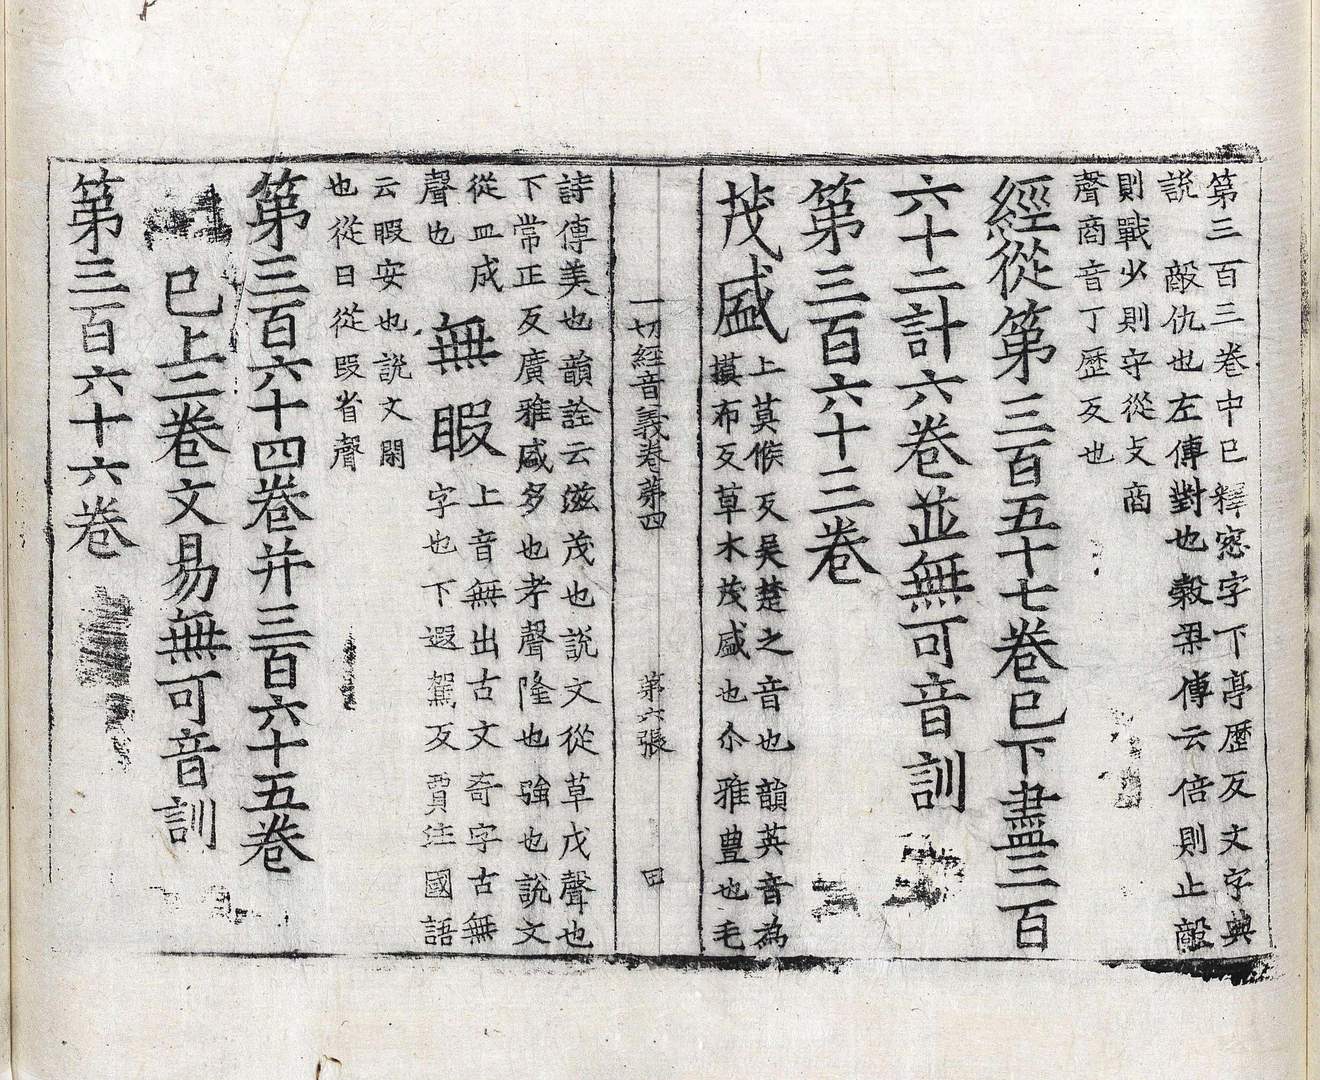 第三百三卷中已釋寃字下亭歷反文字典
說　敵仇也左傳對也穀梁傳云倍則止敵
則戰少則守從攴啇
聲啇音丁歷反也
經從第三百五十七卷已下盡三百
六十二計六卷並無可音訓
第三百六十三卷
茂盛
上莫候反吳楚之音也韻英音為
摸布反草木茂盛也尒雅豊也毛
一切經音義卷第四　第六張　田
詩傳美也韻詮云滋茂也說文從草戊聲也
下常正反廣雅盛多也孝聲隆也強也說文
從皿成
聲也
無暇
上音無出古文奇字古無
字也下遐駕反賈注國語
云暇安也說文閑
也從日從叚省聲
第三百六十四卷并三百六十五卷
已上二卷文易無可音訓
第三百六十六卷